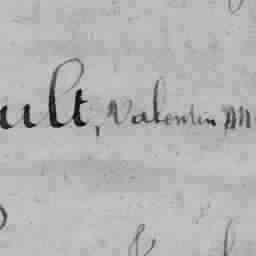 ult, Valentin M